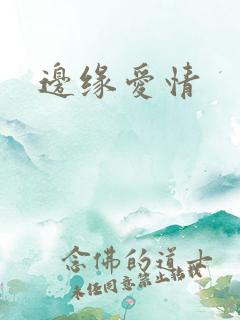 邊缘愛情
念佛的道士
未经同意禁止转载